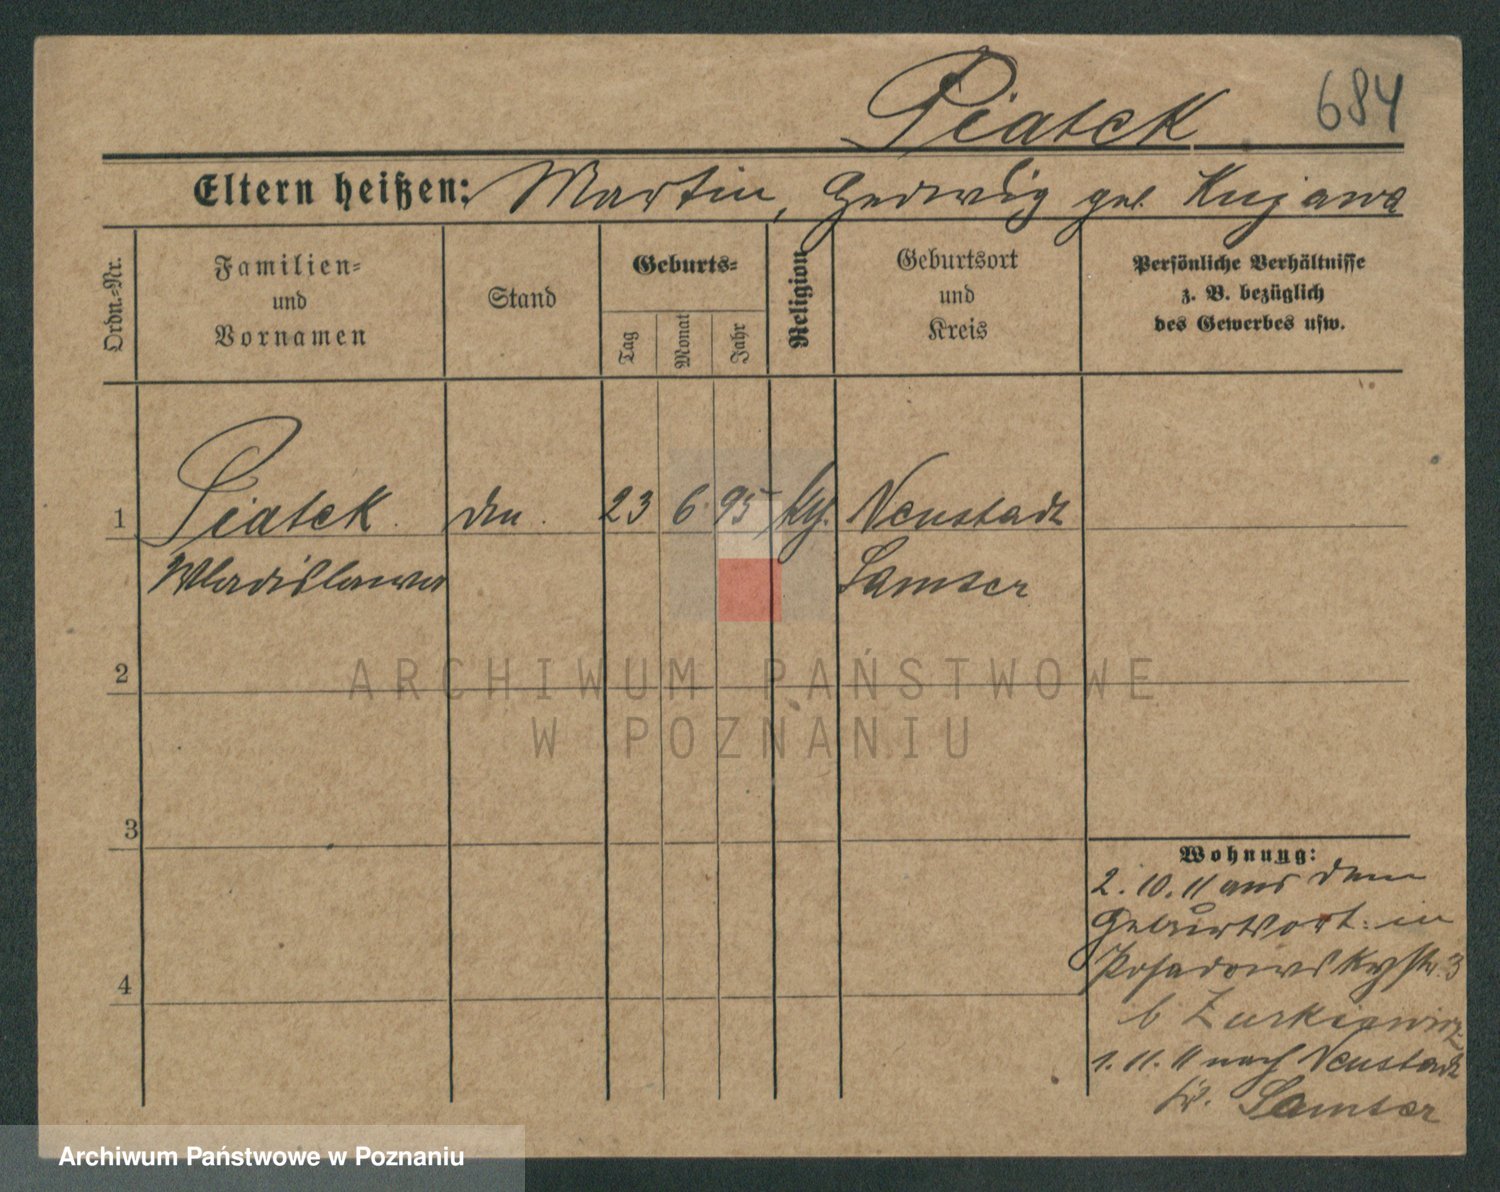 Piatek 684
Eltern heißen: Martin, Hedwig geb Kujawa
Ordn.=Nr.
Familien=
und
Vornamen
Stand
Geburts=
Tag
Monat
Jahr
Religion
Geburtsort
und
Kreis
Persönliche Verhältnisse
z. B. bezüglich
des Gewerbes usw.
1 Piatek 23 6 95 Neustadt
Wladislawa Samter
2
ARCHIWUM PAŃSTWOWE
W POZNANIU
3
4
Wohnung:
2. 10. 11 aus dem
Geburtsort in
Posadowskystr. 3
b Zurkiewicz
1. 11. 11 nach Neustadt
Kr. Samter
Archiwum Państwowe w Poznaniu